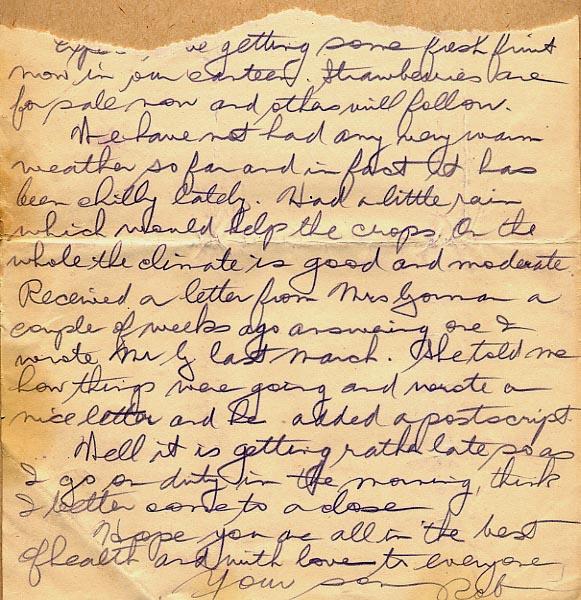 getting some fresh fruit
now in our canteen. Strawberries are
for sale now and others will follow.
We have not had any very warm
weather so far and in fact it has
been chilly lately. Had a little rain
which would help the crops. On the
whole the climate is good and moderate.
Received a letter from Mrs Gorman a
couple of weeks ago answering one I
wrote Mr G last March. She told me
how things were going and wrote a
nice letter and he added a postscript.
Well it is getting rather late so as
I go on duty in the morning, think
I better come to a close.
Hope you are all in the best
of health and with love to everyone
Your son Bob